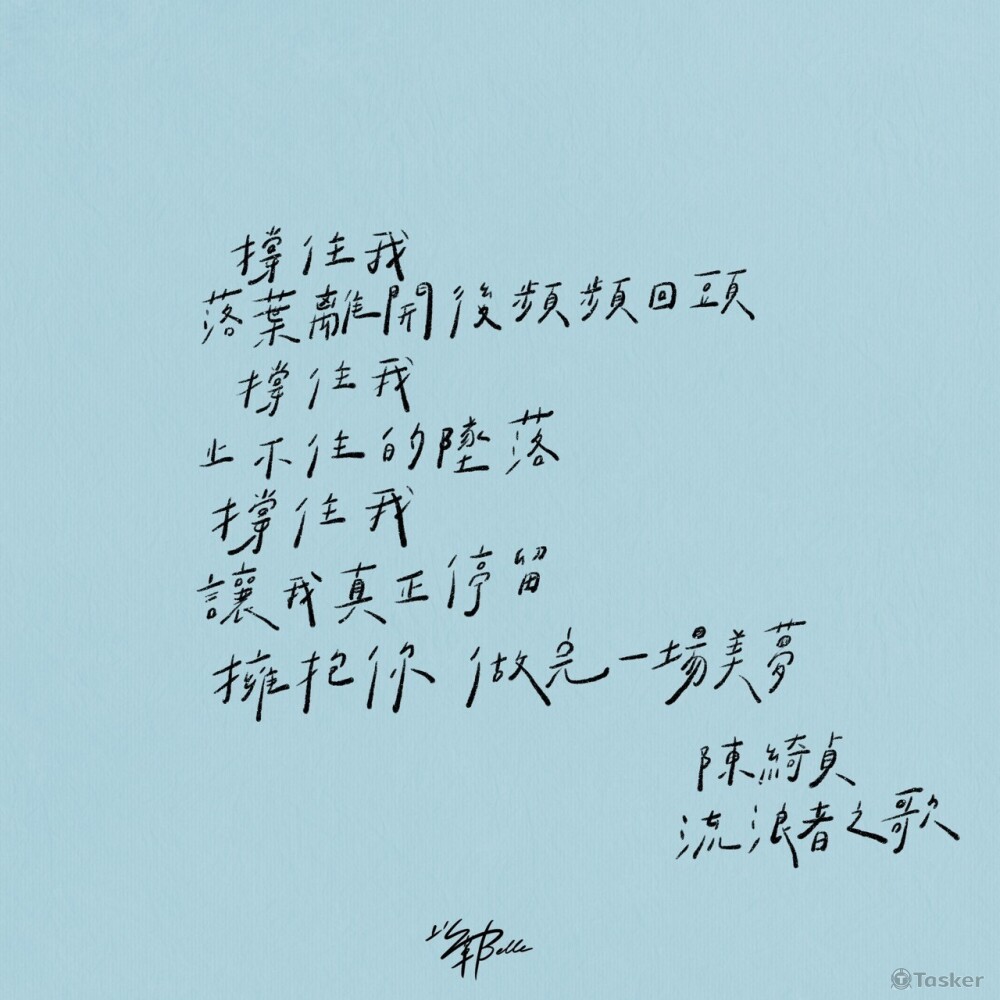 撐住我
落葉離開後頻頻回頭
撐住我
止不住的墜落
撐住我
讓我真正停留
擁抱你 做完一場美夢
陳綺貞
流浪者之歌
Belle
Tasker